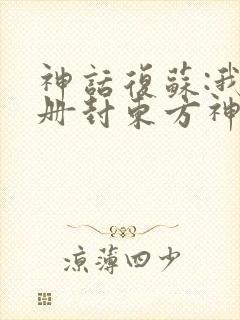 神話復蘇:我
册封東方神
涼薄四少